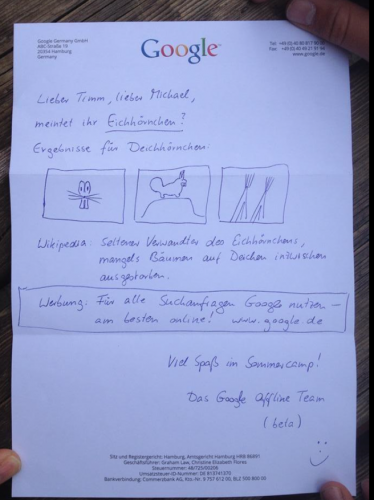 Google Germany GmbH
ABC-Straße 19
20354 Hamburg
Germany
Google
www.google.de
Lieber Timm, lieber Michael,
meintet ihr Eichhörnchen?
Ergebnisse für Deichhörnchen:
Wikipedia: Seltener Verwandter des Eichhörnchens,
mangels Bäumen auf Deichen inzwischen
ausgestorben.
Werbung: Für alle Suchanfragen Google nutzen –
am besten online! www.google.de
Viel Spaß im Sommercamp!
Das Google Offline Team
(beta)
Sitz und Registergericht: Hamburg, Amtsgericht Hamburg HRB 86891
Geschäftsführer: Graham Law, Christine Elizabeth Flores
Steuernummer: 48/725/00358
Umsatzsteuer-ID-Nummer: DE 813741370
Bankverbindung: Commerzbank AG, Kto.-Nr. 9 757 912 00, BLZ 500 800 00